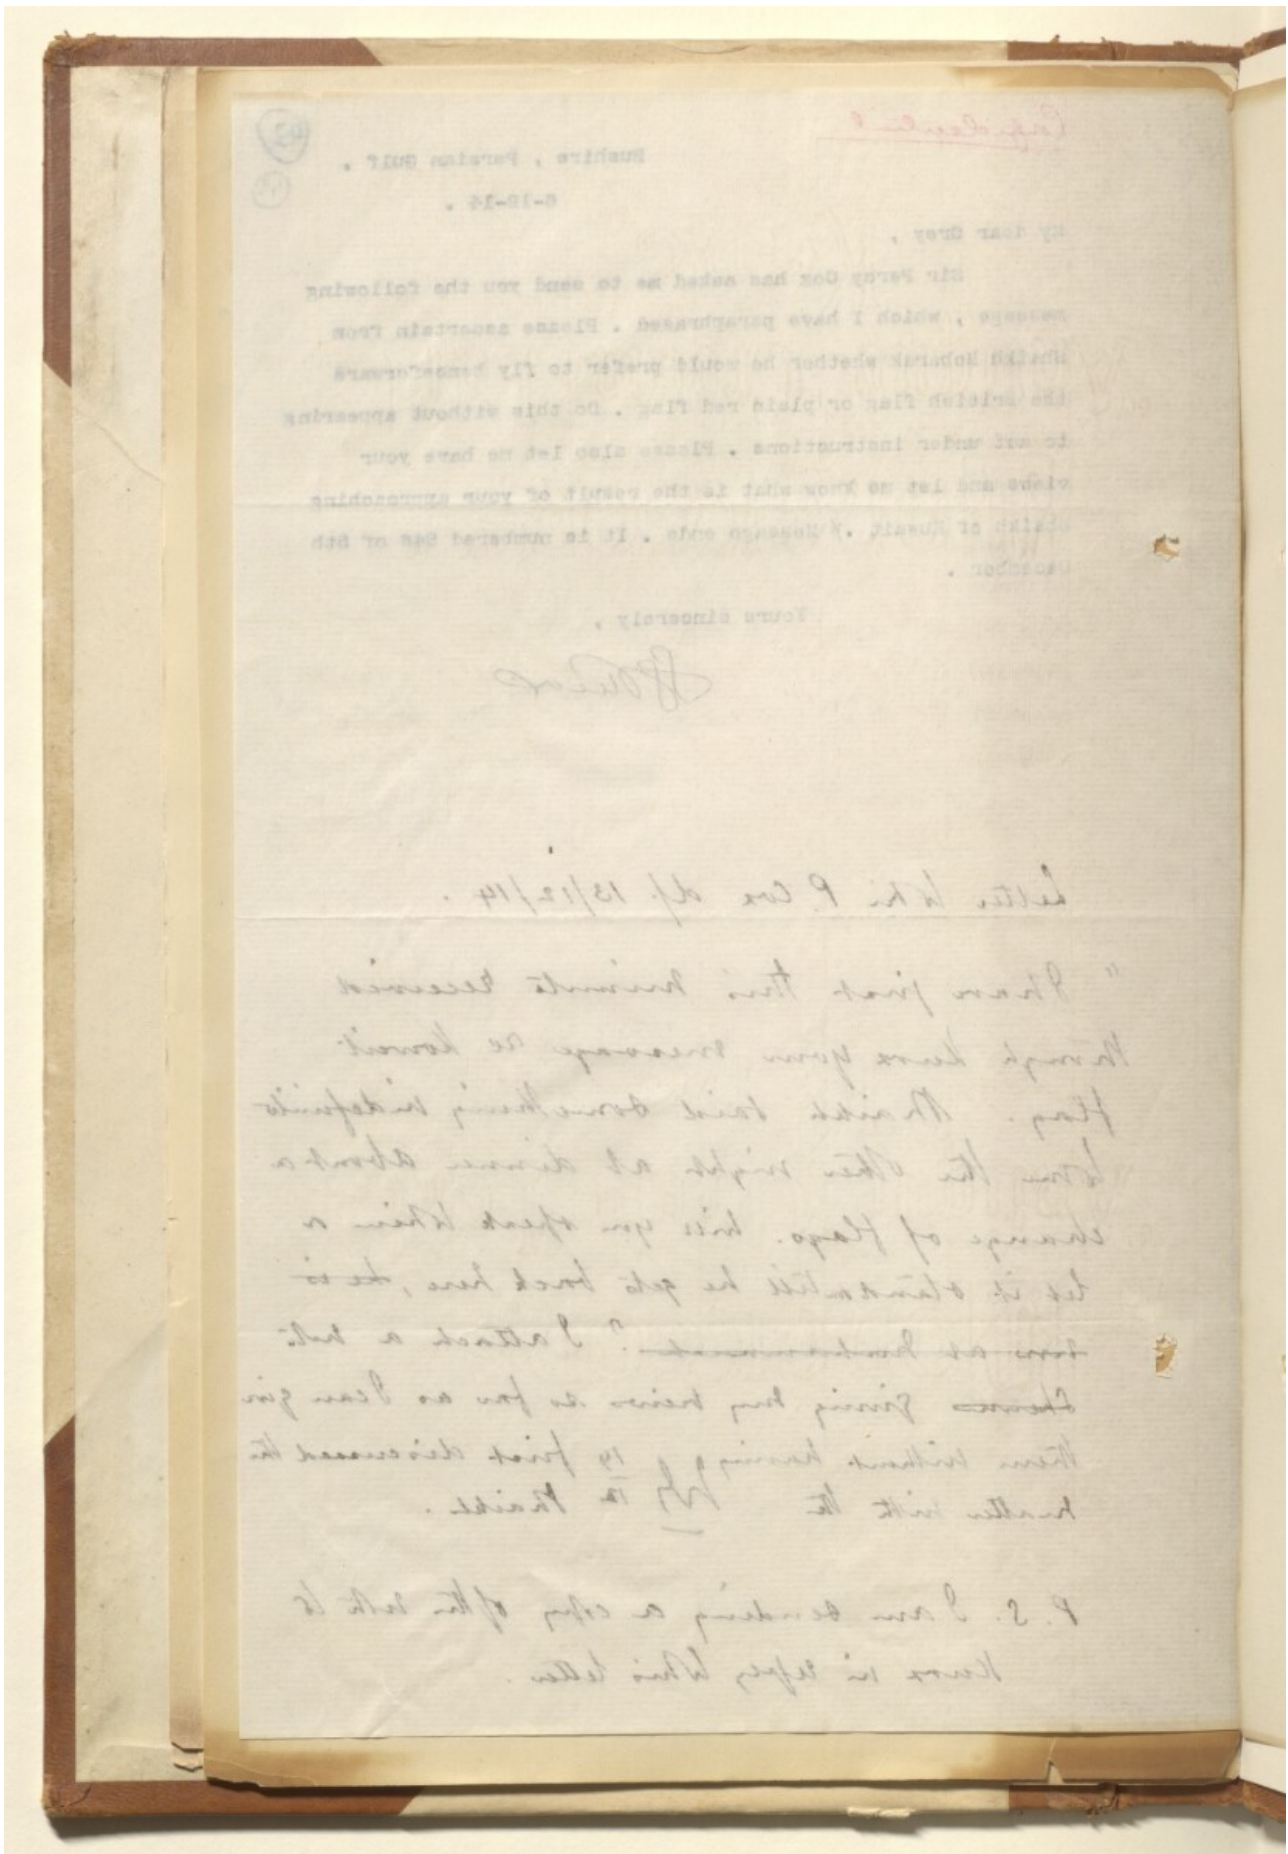 Confidential
Bushire, Persian Gulf.
6-12-14.
My dear Grey,
Sir Percy Cox has asked me to send you the following
message, which I have paraphrased. Please ascertain from
Shaikh Mobarak whether he would prefer to fly henceforward
the British flag or plain red flag. Do this without appearing
to act under instructions. Please also let me have your
views and let me know what is the result of your approaching
Shaikh of Kuwait. Message ends. It is numbered 24B of 5th
December.
Yours sincerely,
Letter to Sir P. Cox d/. 13/12/14.
"I have just this minute received
through Knox your message re Koweit
flag. Shaikh said something indefinite
to me the other night at dinner about a
change of flags. Will you speak to him or
let it stand till he gets back here, he is
? I attach a note
giving my views so far as I can give
them without having first discussed the
matter with the Shaikh.
19/12
P.S. I am sending a copy of the note to
Knox in reply to his letter.